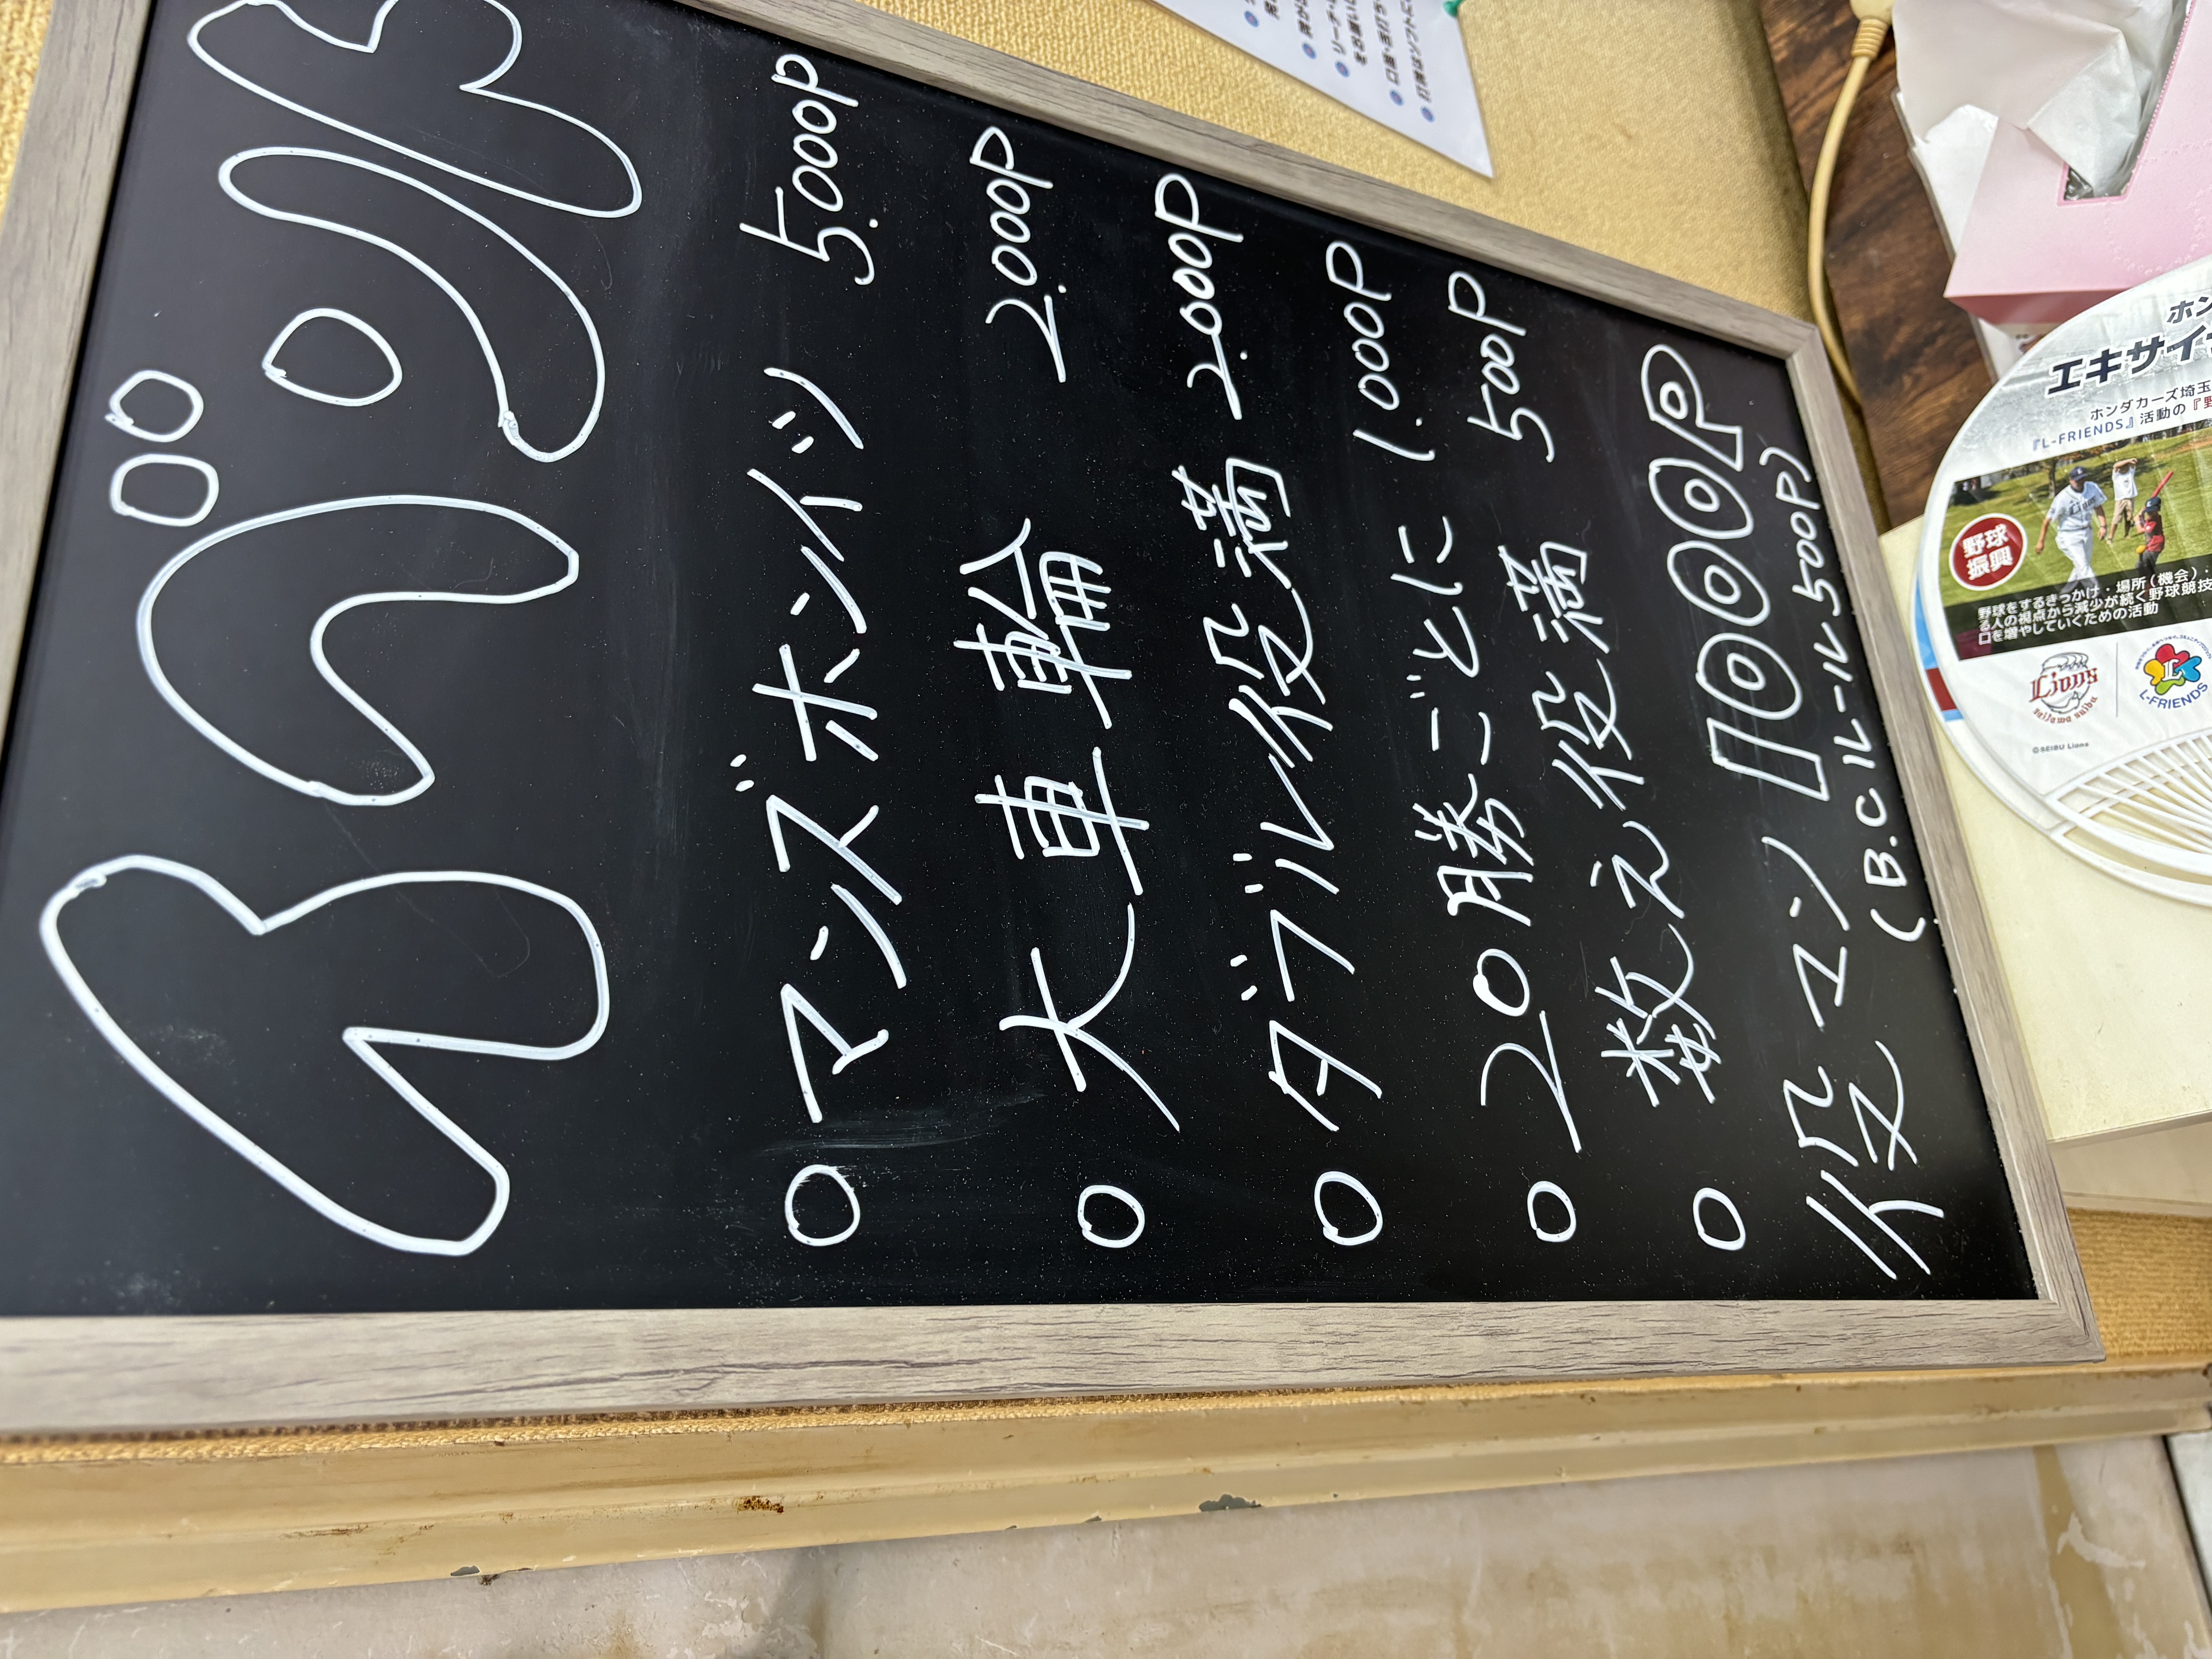 イベント
○マンズホンイツ 5.000P
○大車輪 2.000P
○ダブル役満 2.000P
○20勝ごとに 1.000P
○数え役満 500P
役マン 1000P
(B.Cルール500P)
エキサイ
ホンダカーズ埼玉
『L-FRIENDS』活動の『野
野球
振興
野球をするきっかけ・場所(機会)・
る人の視点から減少が続く野球競技
口を増やしていくための活動
Lions
L-FRIENDS
©SEIBU Lions